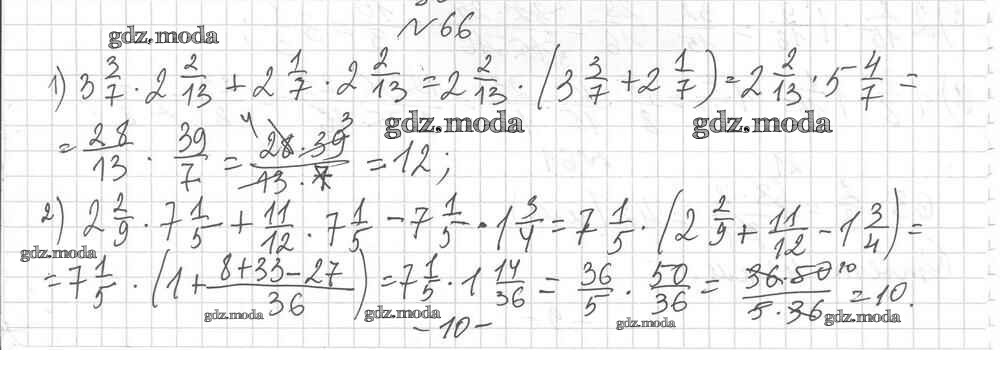 №66
gdz.moda
1) 3 3/7 · 2 2/13 + 2 1/7 · 2 2/13 = 2 2/13 · (3 3/7 + 2 1/7) = 2 2/13 · 5 4/7 =
gdz.moda gdz.moda
= 28/13 · 39/7 = 28 · 39/13 · 7 = 12;
4 3
2) 2 2/9 · 7 1/5 + 11/12 · 7 1/5 - 7 1/5 · 1 3/4 = 7 1/5 · (2 2/9 + 11/12 - 1 3/4) =
gdz.moda
= 7 1/5 · (1 + 8+33-27/36) = 7 1/5 · 1 14/36 = 36/5 · 50/36 = 36 · 50/5 · 36 = 10.
10
gdz.moda gdz.moda gdz.moda gdz.moda
- 10 -